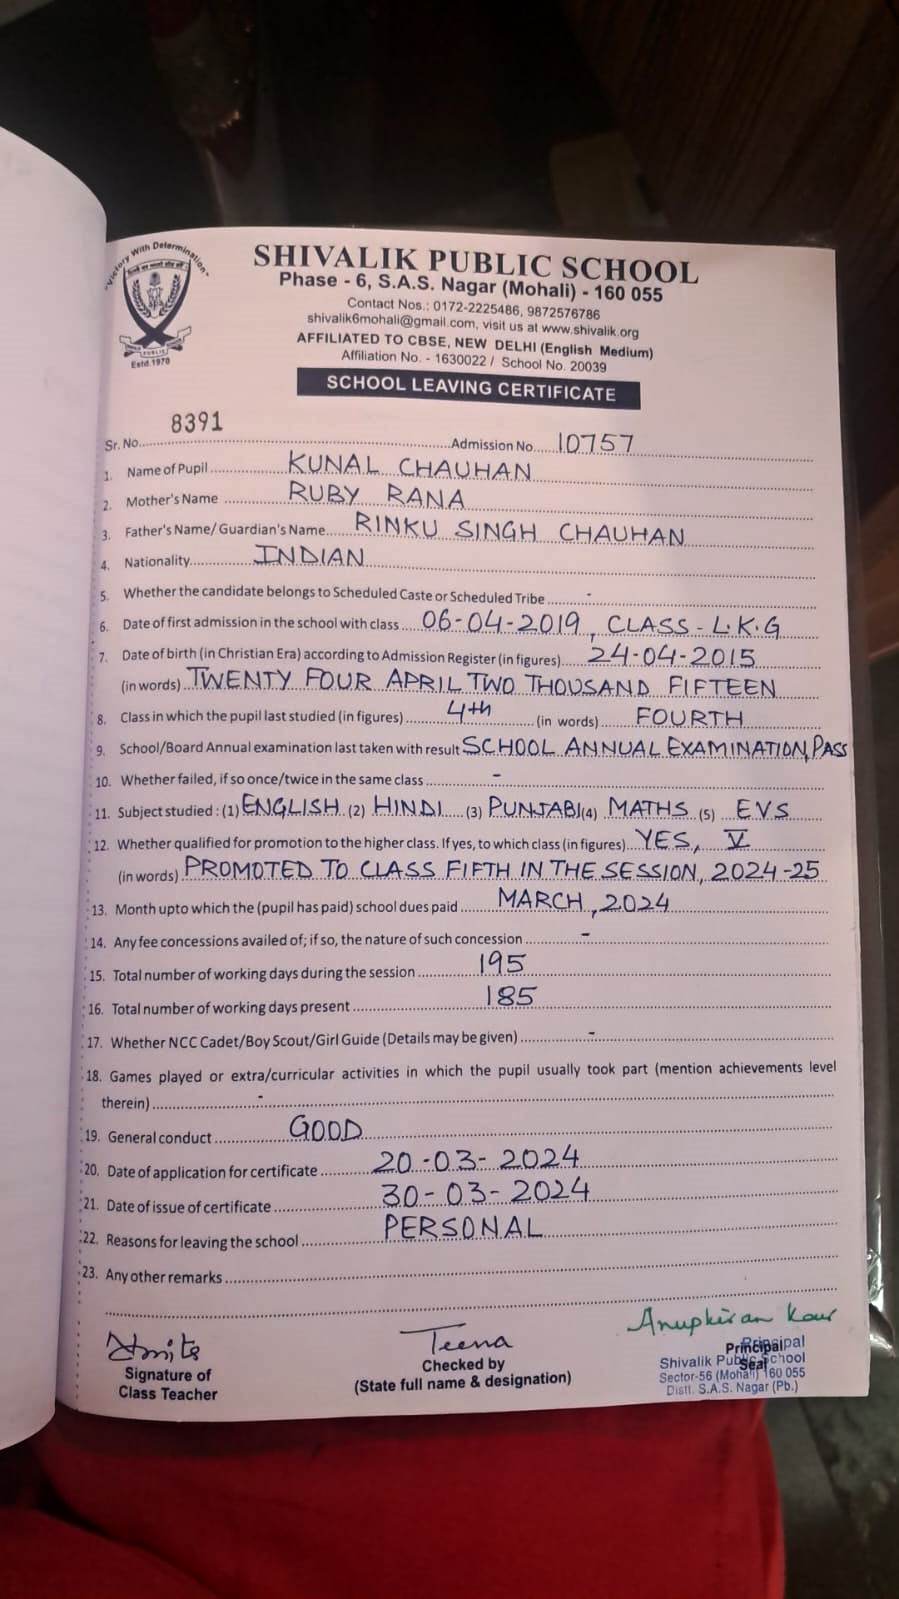 "Victory With Determination"
Estd.1970
SHIVALIK PUBLIC SCHOOL
Phase - 6, S.A.S. Nagar (Mohali) - 160 055
Contact Nos.: 0172-2225486, 9872576786
shivalik6mohali@gmail.com, visit us at www.shivalik.org
AFFILIATED TO CBSE, NEW DELHI (English Medium)
Affiliation No. - 1630022 / School No. 20039
SCHOOL LEAVING CERTIFICATE
Sr. No. 8391 Admission No. 10757
1. Name of Pupil KUNAL CHAUHAN
2. Mother's Name RUBY RANA
3. Father's Name/ Guardian's Name RINKU SINGH CHAUHAN
4. Nationality INDIAN
5. Whether the candidate belongs to Scheduled Caste or Scheduled Tribe -
6. Date of first admission in the school with class 06-04-2019, CLASS - L.K.G
7. Date of birth (in Christian Era) according to Admission Register (in figures) 24-04-2015
(in words) TWENTY FOUR APRIL TWO THOUSAND FIFTEEN
8. Class in which the pupil last studied (in figures) 4th (in words) FOURTH
9. School/Board Annual examination last taken with result SCHOOL ANNUAL EXAMINATION, PASS
10. Whether failed, if so once/twice in the same class -
11. Subject studied : (1) ENGLISH (2) HINDI (3) PUNJABI (4) MATHS (5) EVS
12. Whether qualified for promotion to the higher class. If yes, to which class (in figures) YES, V
(in words) PROMOTED TO CLASS FIFTH IN THE SESSION, 2024-25
13. Month upto which the (pupil has paid) school dues paid MARCH, 2024
14. Any fee concessions availed of; if so, the nature of such concession -
15. Total number of working days during the session 195
16. Total number of working days present 185
17. Whether NCC Cadet/Boy Scout/Girl Guide (Details may be given) -
18. Games played or extra/curricular activities in which the pupil usually took part (mention achievements level
therein) -
19. General conduct GOOD
20. Date of application for certificate 20-03-2024
21. Date of issue of certificate 30-03-2024
22. Reasons for leaving the school PERSONAL
23. Any other remarks
Teena
Anupkiran Kaur
Signature of
Class Teacher
Checked by
(State full name & designation)
Principal
Seal
Principal
Shivalik Public School
Sector-56 (Mohali) 160 055
Distt. S.A.S. Nagar (Pb.)